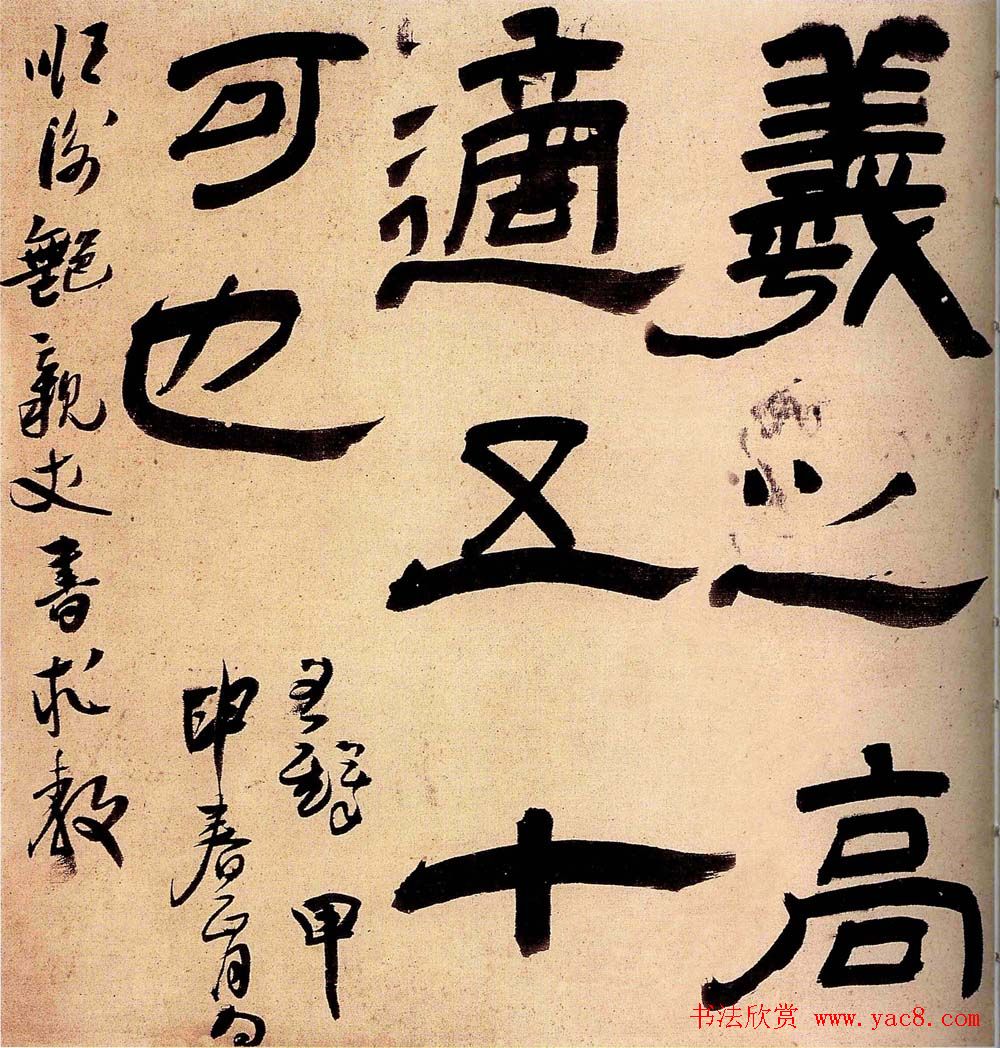 羲之高
適五十
可也
王鐸 甲
申春正月為
親丈書求教
书法欣赏 www.yac8.com